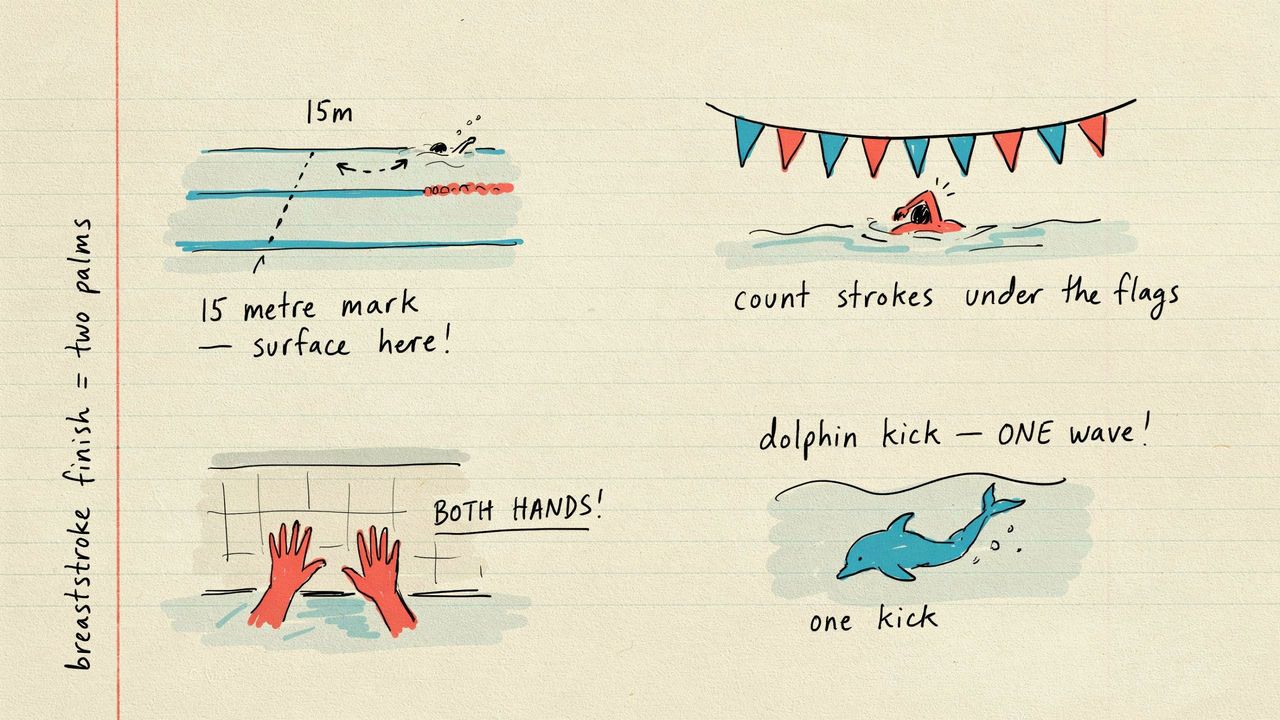 15m
15 metre mark
— surface here!
count strokes under the flags
breaststroke finish = two palms
BOTH HANDS!
dolphin kick — ONE wave!
one kick